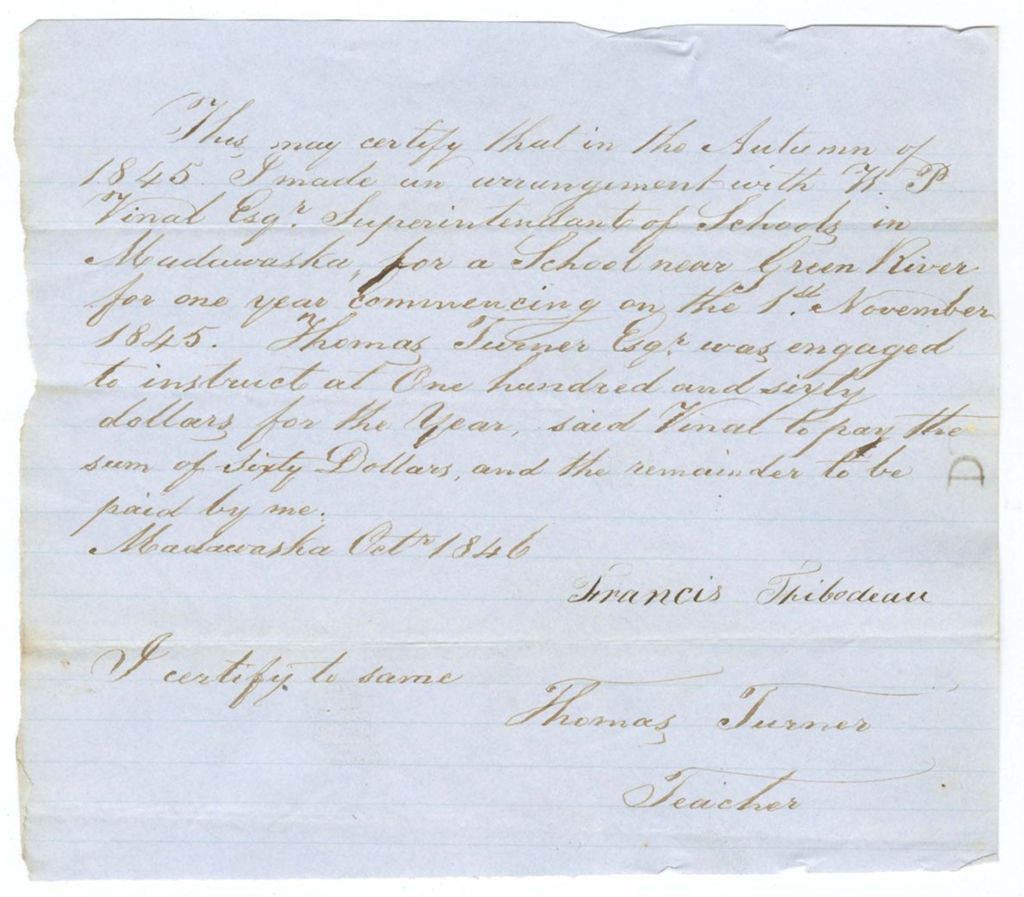 This may certify that in the Autumn of
1845 I made an arrangement with W. P.
Vinal Esqr. Superintendant of Schools in
Madawaska, for a School near Green River
for one year commencing on the 1st. November
1845. Thomas Turner Esqr. was engaged
to instruct at One hundred and sixty
dollars for the Year, said Vinal to pay the
sum of sixty Dollars, and the remainder to be
paid by me.
Madawaska Octr 1846
Francis Thibodeau
I certify to same
Thomas Turner
Teacher
D